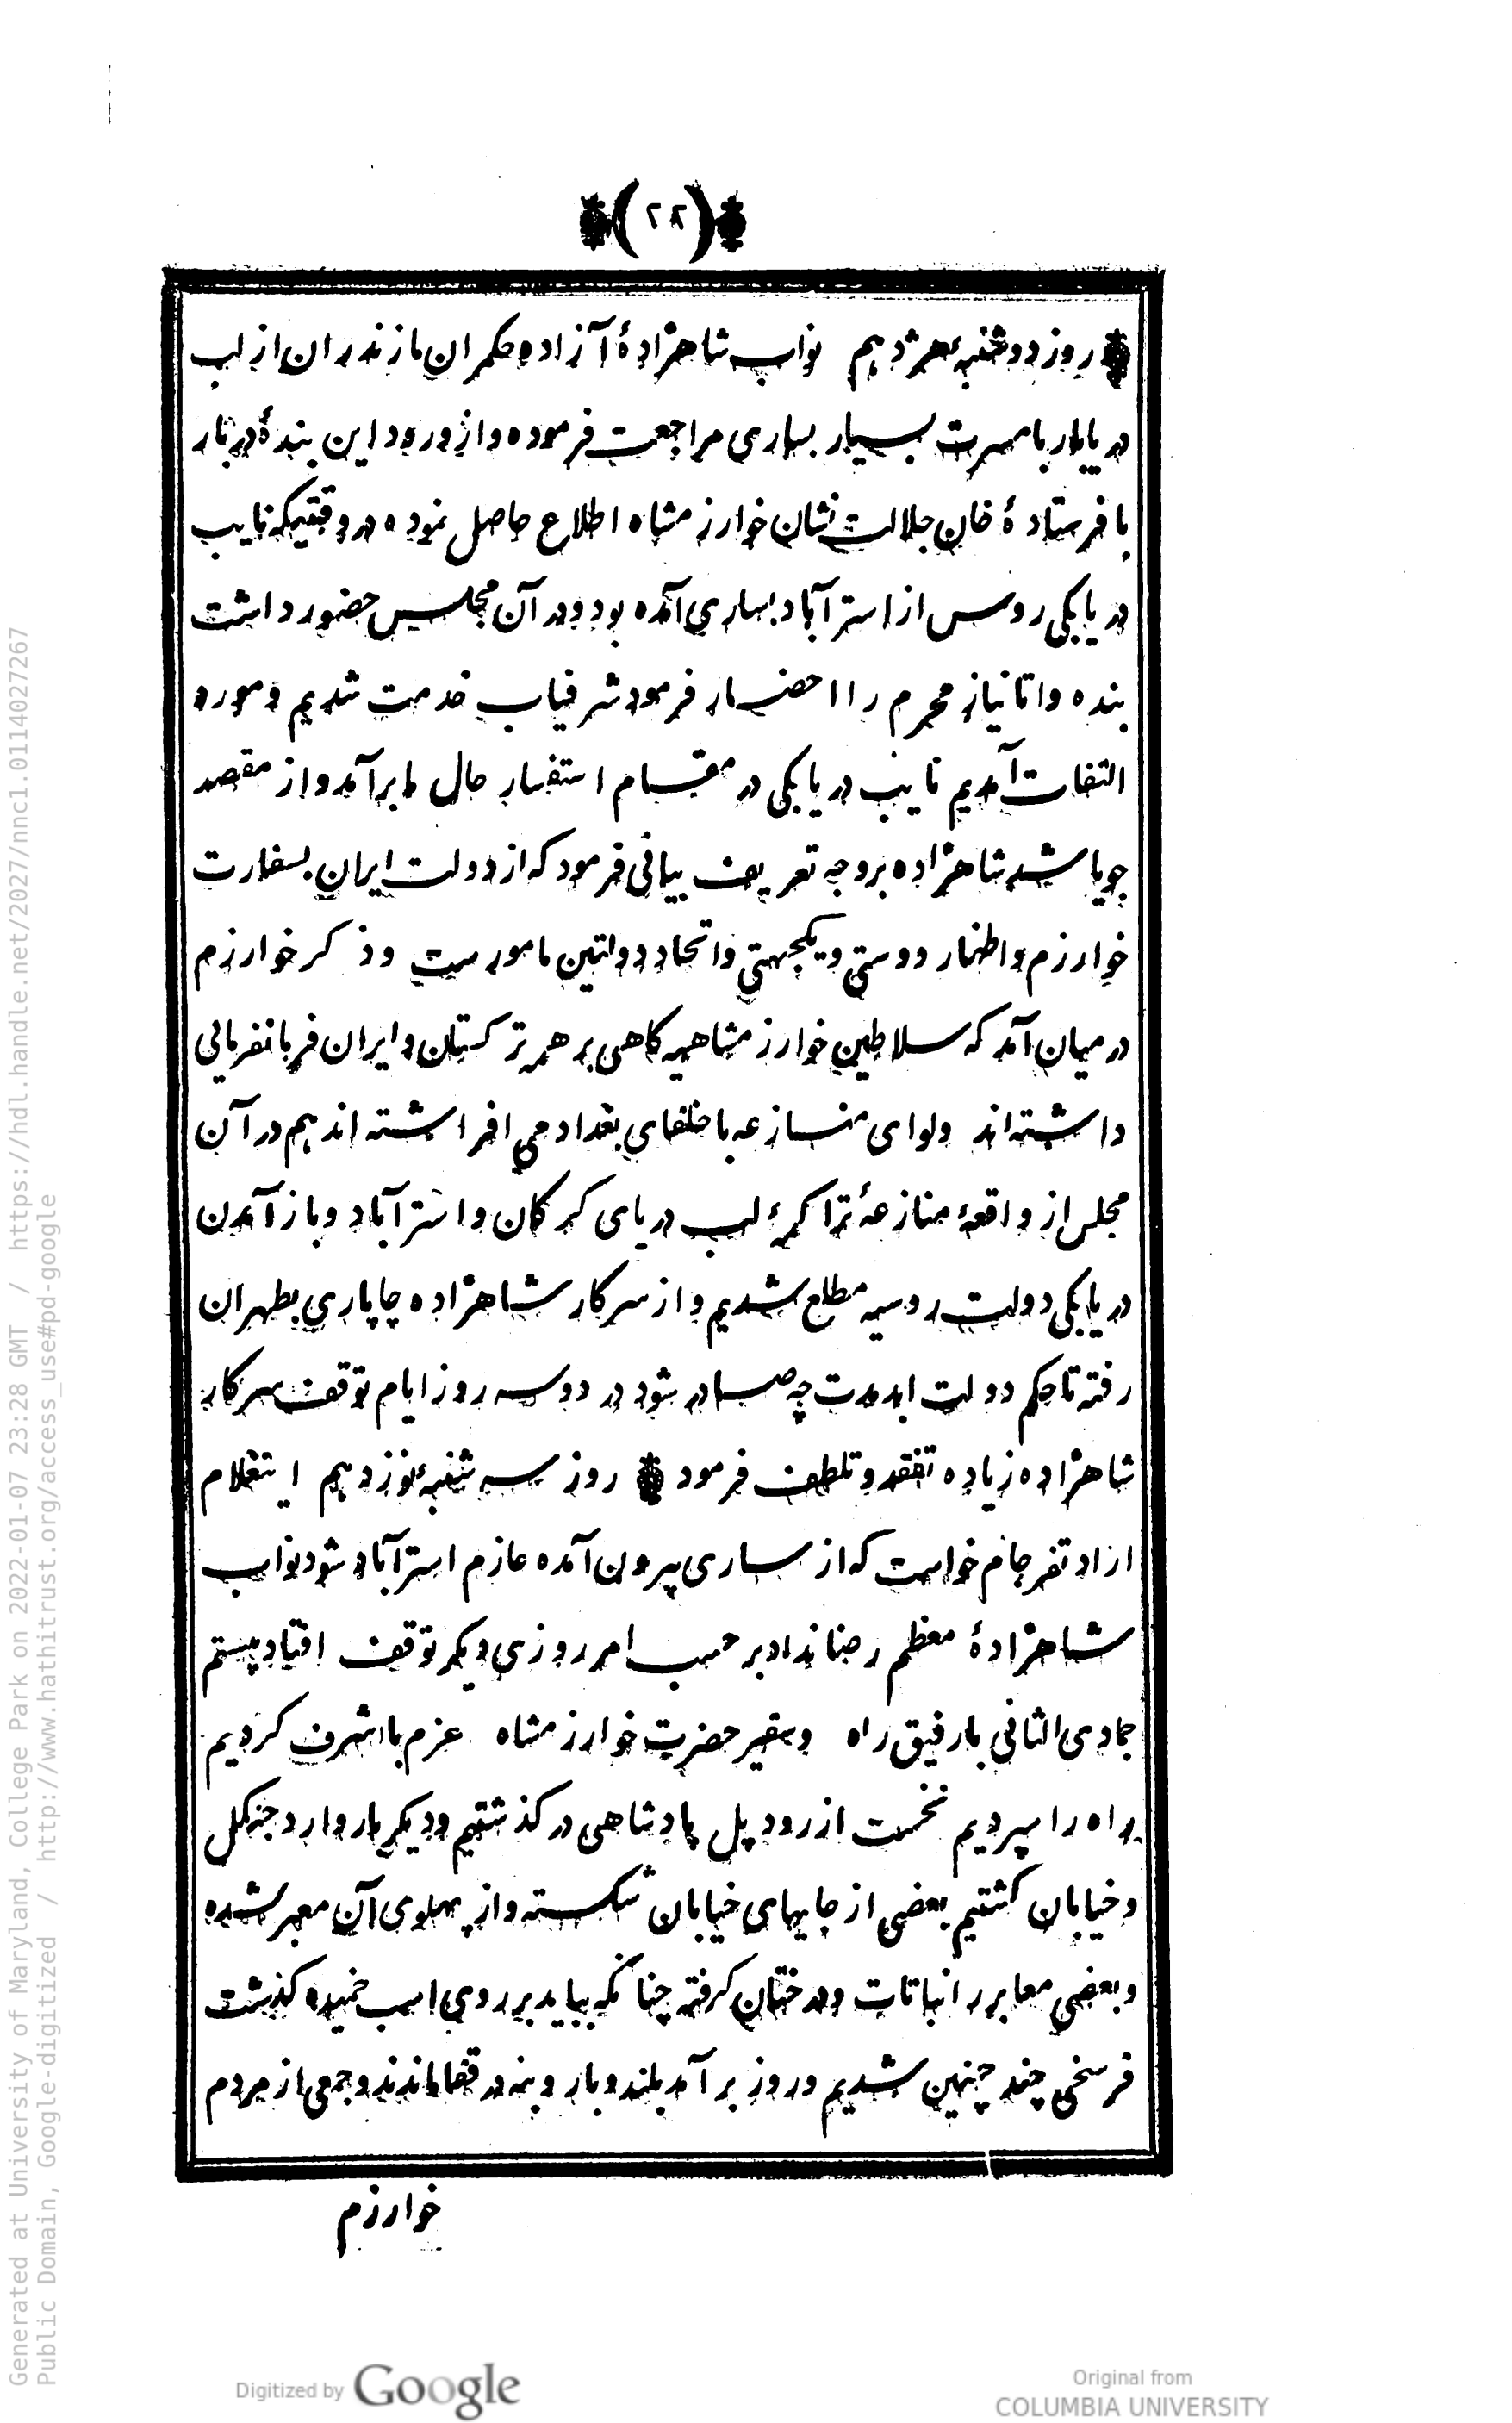 (۲۸)
روز دوشنبهٔ هژدهم نواب شاهزادهٔ آزاده حکمران مازندران از لب
دریابار با مسرت بسیار بساری مراجعت فرموده و از ورود این بندهٔ دربار
با فرستادهٔ خان جلالت نشان خوارزمشاه اطلاع حاصل نموده در وقتیکه نایب
دریابکی روس از استرآباد بساری آمده بود و در آن مجلس حضور داشت
بنده و اتانیاز محرم را احضار فرمود شرفیاب خدمت شدیم و مورد
التفات آمدیم نایب دریابکی در مقام استفسار حال ما برآمد و از مقصد
جویا شد شاهزاده بر وجه تعریف بیانی فرمود که از دولت ایران بسفارت
خوارزم و اظهار دوستی و یکجهتی و اتحاد دولتین مامورست و ذکر خوارزم
در میان آمد که سلاطین خوارزمشاهیه کاهی بر همه ترکستان و ایران فرمانفرمائی
داشته‌اند ولوای منازعه با خلفای بغداد می افراشته اند هم در آن
مجلس از واقعهٔ منازعهٔ تراکمهٔ لب دریای کرکان و استرآباد و باز آمدن
دریابکی دولت روسیه مطلع شدیم و از سرکار شاهزاده چاپاری بطهران
رفته تا حکم دولت ابدمدت چه صادر شود در دو سه روز ایام توقف سرکار
شاهزاده زیاده تفقد و تلطف فرمود روز سه شنبهٔ نوزدهم اینغلام
ارادتفرجام خواست که از ساری بیرون آمده عازم استرآباد شود نواب
شاهزادهٔ معظم رضا نداد بر حسب امر روزی دیکر توقف افتاد بیستم
جمادی الثانی با رفیق راه و سفیر حضرت خوارزمشاه عزم با اشرف کردیم
و راه را سپردیم نخست از رود پل پادشاهی در کذشتیم و دیکر بار وارد جنکل
و خیابان کشتیم بعضی از جایهای خیابان شکسته و از پهلوی آن معبر شده
و بعضی معابر را نباتات و درختان کرفته چنانکه بباید بر روی اسب خمیده کذشت
فرسخی چند چنین شدیم و روز برآمد بلند و بار و بنه در قفا ماندند و جمعی از مردم
خوارزم
Generated at University of Maryland, College Park on 2022-01-07 23:28 GMT / https://hdl.handle.net/2027/nnc1.0114027267
Public Domain, Google-digitized / http://www.hathitrust.org/access_use#pd-google
Digitized by Google
Original from
COLUMBIA UNIVERSITY